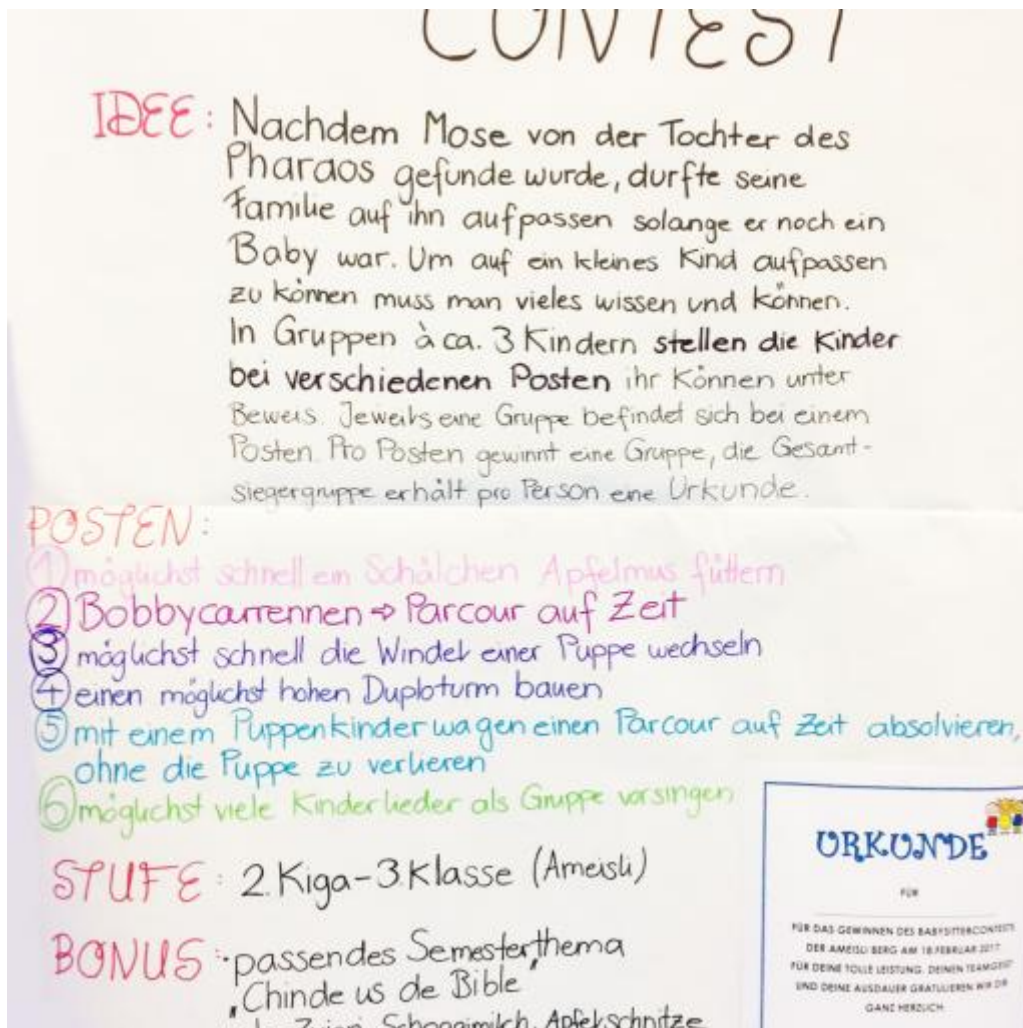 CONTEST
IDEE: Nachdem Mose von der Tochter des
Pharaos gefunde wurde, durfte seine
Familie auf ihn aufpassen solange er noch ein
Baby war. Um auf ein kleines Kind aufpassen
zu können muss man vieles wissen und können.
In Gruppen à ca. 3 Kindern stellen die Kinder
bei verschiedenen Posten ihr Können unter
Beweis. Jeweils eine Gruppe befindet sich bei einem
Posten. Pro Posten gewinnt eine Gruppe, die Gesamt-
siegergruppe erhält pro Person eine Urkunde.
POSTEN:
1 möglichst schnell ein Schälchen Apfelmus füttern
2 Bobbycarrennen ⇨ Parcour auf Zeit
3 möglichst schnell die Windel einer Puppe wechseln
4 einen möglichst hohen Duploturm bauen
5 mit einem Puppenkinderwagen einen Parcour auf Zeit absolvieren,
ohne die Puppe zu verlieren
6 möglichst viele Kinderlieder als Gruppe vorsingen
STUFE: 2. Kiga-3. Klasse (Ameisli)
BONUS: · passendes Semesterthema
„Chinde us de Bible"
Zvieri Schoggimilch, Apfelschnitze
URKUNDE
FÜR
FÜR DAS GEWINNEN DES BABYSITTERCONTESTS
DER AMEISLI BERG AM 18.FEBRUAR 2017.
FÜR DEINE TOLLE LEISTUNG, DEINEN TEAMGEIST
UND DEINE AUSDAUER GRATULIEREN WIR DIR
GANZ HERZLICH.